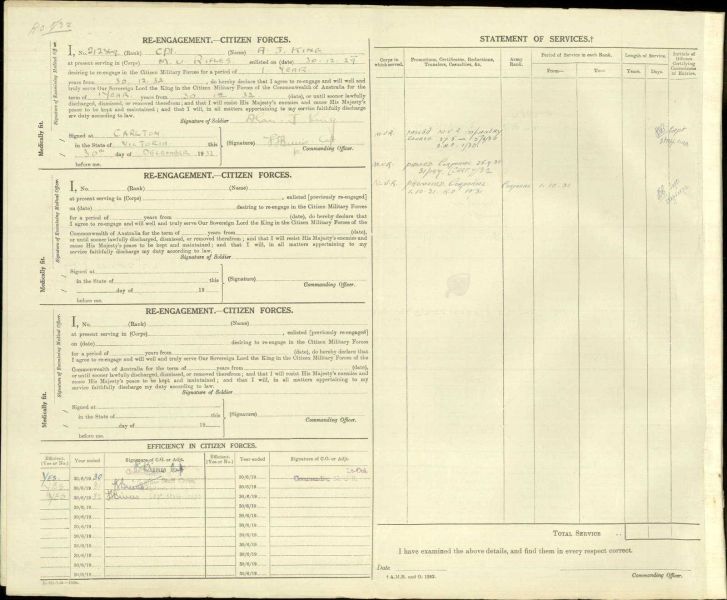 RE-ENGAGEMENT.—CITIZEN FORCES.
I, No. (Rank) CPL (Name) A. J. KING
at present serving in (Corps) M. U. RIFLES enlisted on (date) 30.12.29
desiring to re-engage in the Citizen Military Forces for a period of 1 YEAR
years from 30.12.32, do hereby declare that I agree to re-engage and will well and
truly serve Our Sovereign Lord the King in the Citizen Military Forces of the Commonwealth of Australia for the
term of 1 YEAR years from 30.12.32 (date), or until sooner lawfully
discharged, dismissed, or removed therefrom; and that I will resist His Majesty's enemies and cause His Majesty's
peace to be kept and maintained; and that I will, in all matters appertaining to my service faithfully discharge
my duty according to law.
Signature of Soldier Alan J King
Signed at CARLTON
in the State of VICTORIA this
30th day of DECEMBER 1932
before me.
(Signature)
Commanding Officer.
Medically fit.
Signature of Examining Medical Officer.
RE-ENGAGEMENT.—CITIZEN FORCES.
I, No. (Rank) (Name)
at present serving in (Corps) , enlisted [previously re-engaged]
on (date) desiring to re-engage in the Citizen Military Forces
for a period of years from (date), do hereby declare that
I agree to re-engage and will well and truly serve Our Sovereign Lord the King in the Citizen Military Forces of the
Commonwealth of Australia for the term of years from (date),
or until sooner lawfully discharged, dismissed, or removed therefrom; and that I will resist His Majesty's enemies and
cause His Majesty's peace to be kept and maintained; and that I will, in all matters appertaining to my
service faithfully discharge my duty according to law.
Signature of Soldier
Signed at
in the State of this
day of 19
before me.
(Signature)
Commanding Officer.
Medically fit.
Signature of Examining Medical Officer.
RE-ENGAGEMENT.—CITIZEN FORCES.
I, No. (Rank) (Name)
at present serving in (Corps) , enlisted [previously re-engaged]
on (date) desiring to re-engage in the Citizen Military Forces
for a period of years from (date), do hereby declare that
I agree to re-engage and will well and truly serve Our Sovereign Lord the King in the Citizen Military Forces of the
Commonwealth of Australia for the term of years from (date),
or until sooner lawfully discharged, dismissed, or removed therefrom; and that I will resist His Majesty's enemies and
cause His Majesty's peace to be kept and maintained; and that I will, in all matters appertaining to my
service faithfully discharge my duty according to law.
Signature of Soldier
Signed at
in the State of this
day of 19
before me.
(Signature)
Commanding Officer.
Medically fit.
Signature of Examining Medical Officer.
EFFICIENCY IN CITIZEN FORCES.
Efficient. (Yes or No.) Year ended Signature of C.O. or Adjt. Efficient. (Yes or No.) Year ended Signature of C.O. or Adjt.
YES. 30/6/19 30 30/6/19 Lt-Col.
30/6/19 30/6/19
30/6/19 30/6/19
30/6/19 30/6/19
30/6/19 30/6/19
30/6/19 30/6/19
30/6/19 30/6/19
30/6/19 30/6/19
30/6/19 30/6/19
STATEMENT OF SERVICES.†
Corps in which served. Promotions, Certificates, Reductions, Transfers, Casualties, &c. Army Rank. Period of Service in each Rank. Length of Service. Initials of Officer Certifying Correctness of Entries.
From— To— Years. Days
M.U.R. passed
M.U.R. passed Corporal
M.U.R. promoted Corporal Corporal 1.10.31
1.10.31
TOTAL SERVICE
I have examined the above details, and find them in every respect correct.
Date
† A.M.R. and O. 1262.
Commanding Officer.